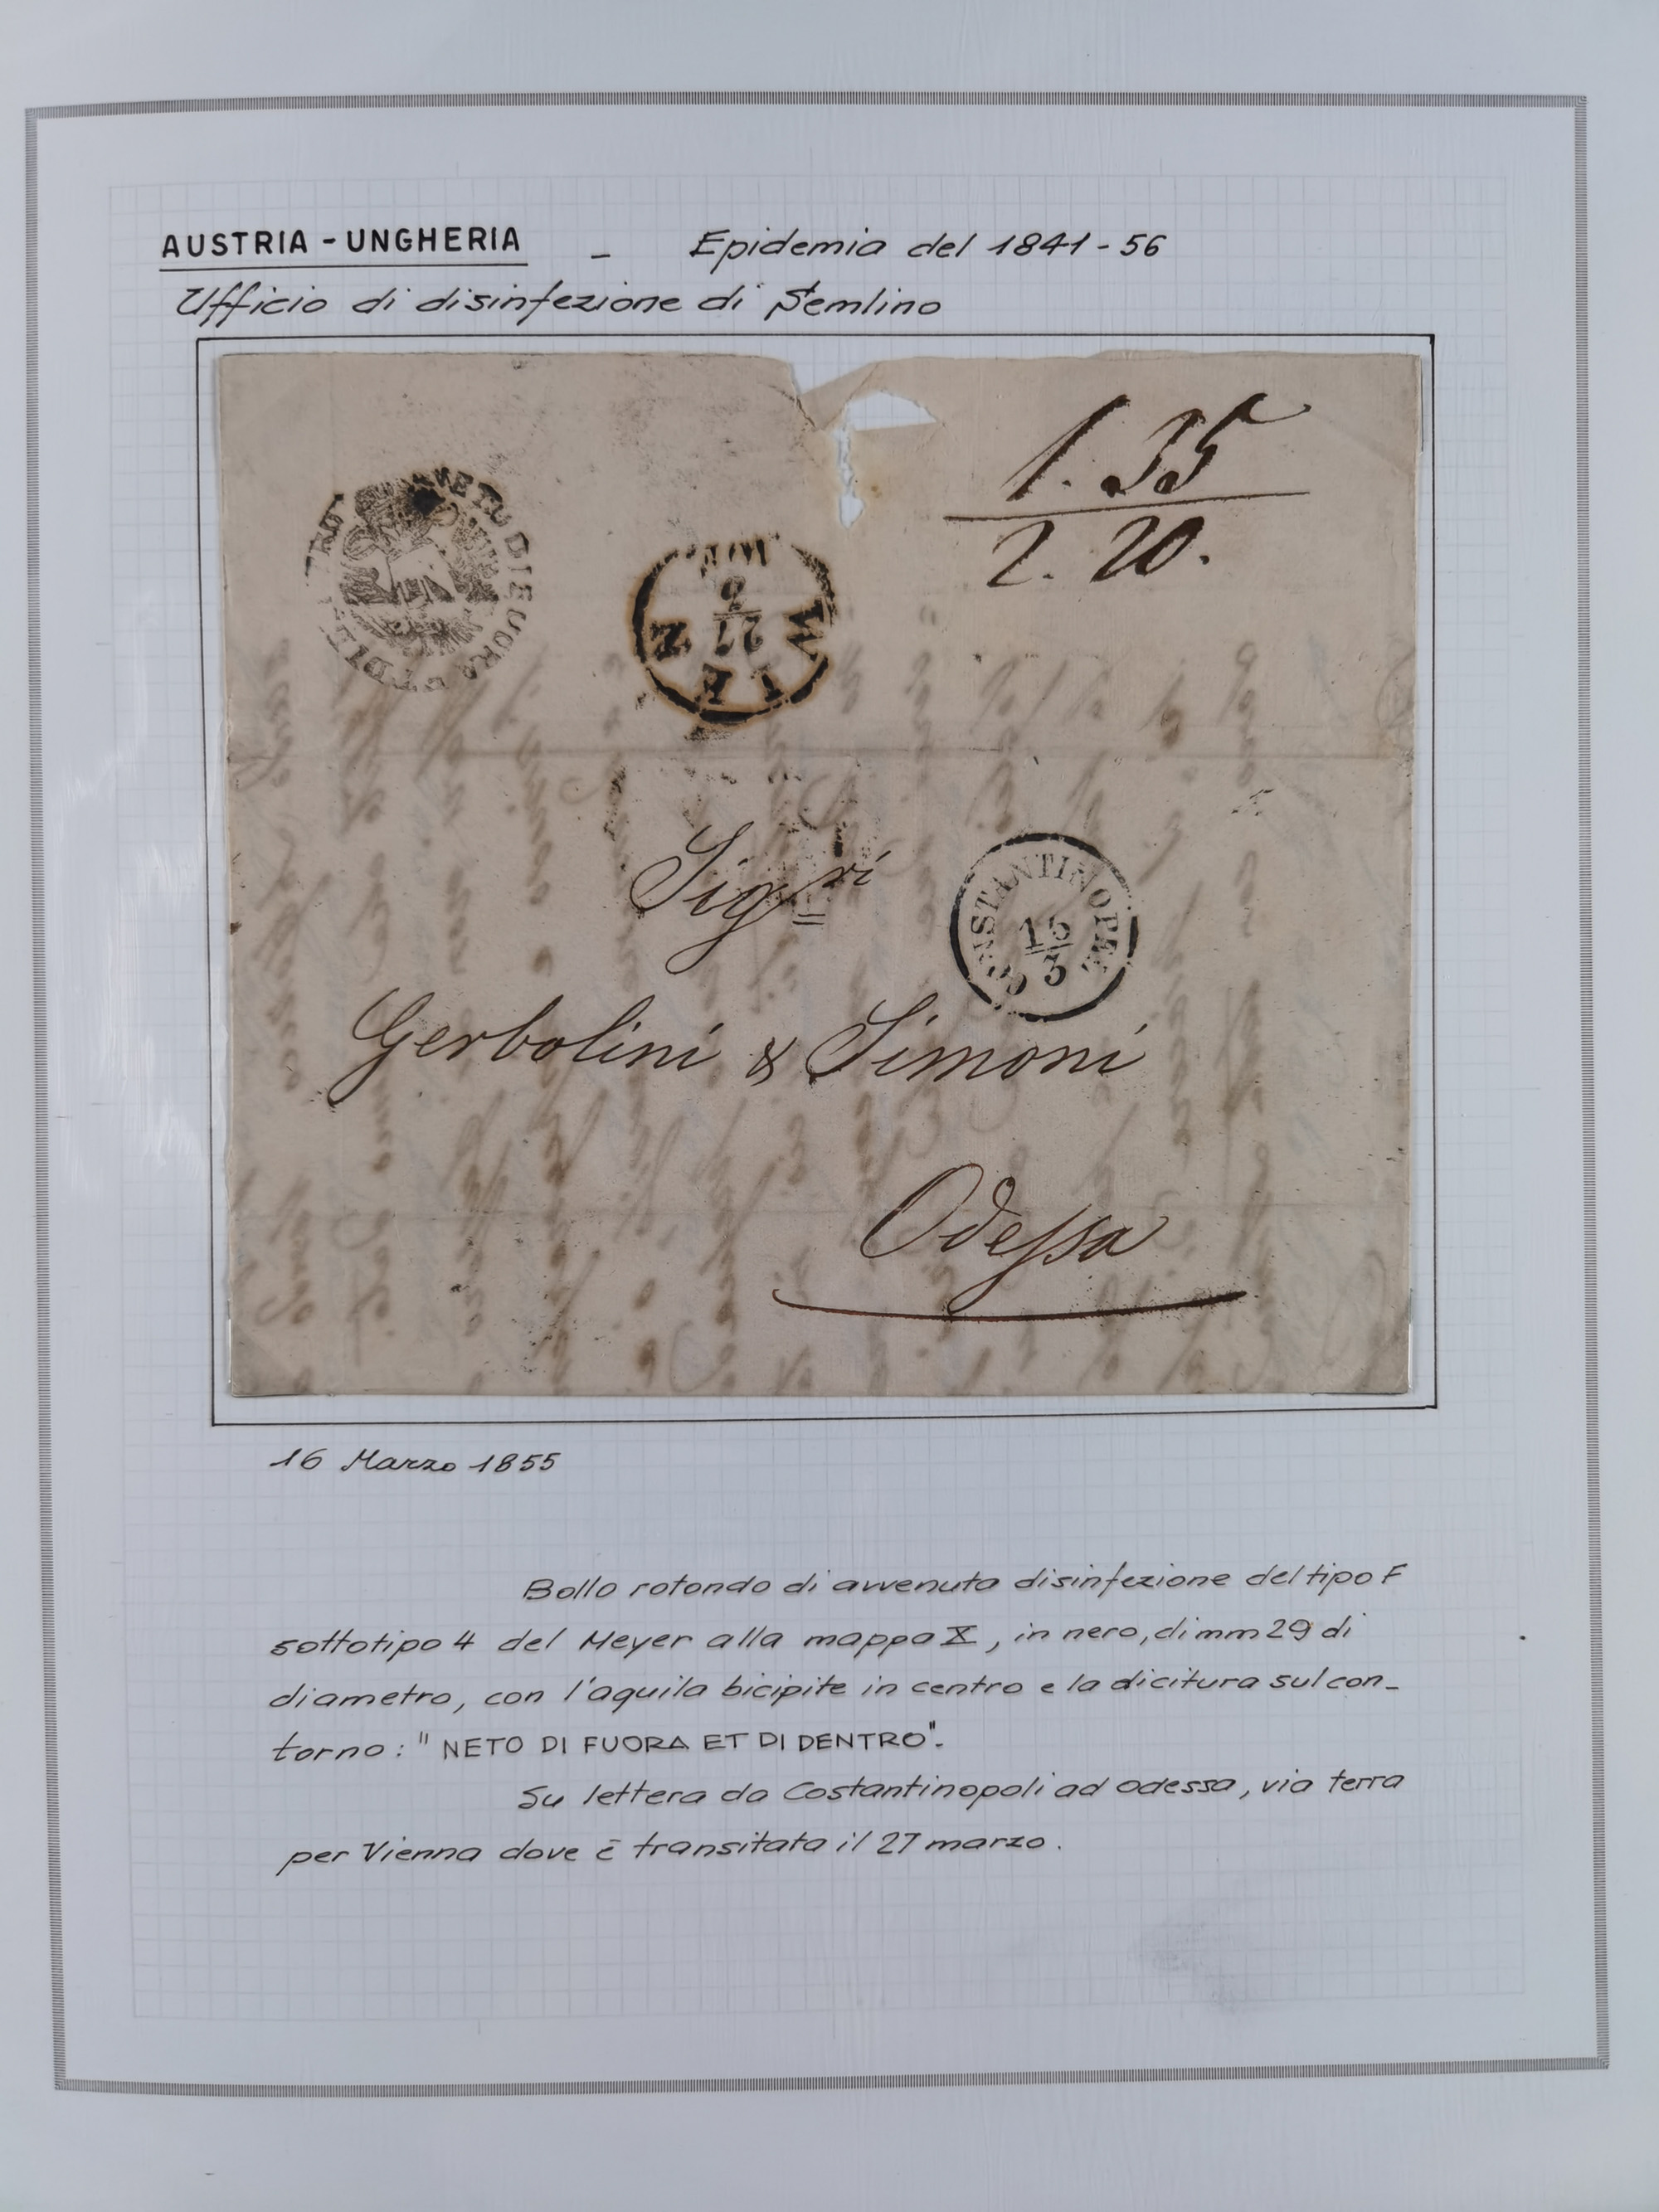 AUSTRIA - UNGHERIA - Epidemia del 1841-56
Ufficio di disinfezione di Semlino
1.35
2.20.
NETO DI FUORA
WIEN
27
Sigri
CONSTANTINOPEL
16
3
Gerbolini & Simoni
Odessa
16 Marzo 1855
Bollo rotondo di avvenuta disinfezione del tipo F
sottotipo 4 del Meyer alla mappa X, in nero, di mm 29 di
diametro, con l'aquila bicipite in centro e la dicitura sul con-
torno: "NETO DI FUORA ET DI DENTRO".
Su lettera da Costantinopoli ad Odessa, via terra
per Vienna dove è transitata il 27 marzo.